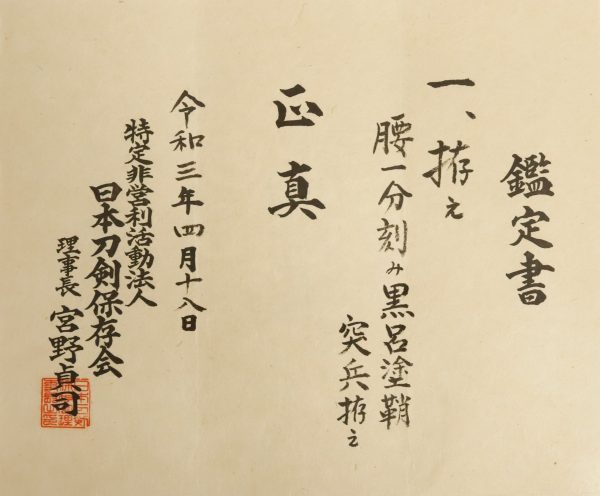 鑑定書
一、拵え
腰一分刻み黒呂塗鞘
突兵拵え
正真
令和三年四月十八日
特定非営利活動法人
日本刀剣保存会
理事長 宮野貞司